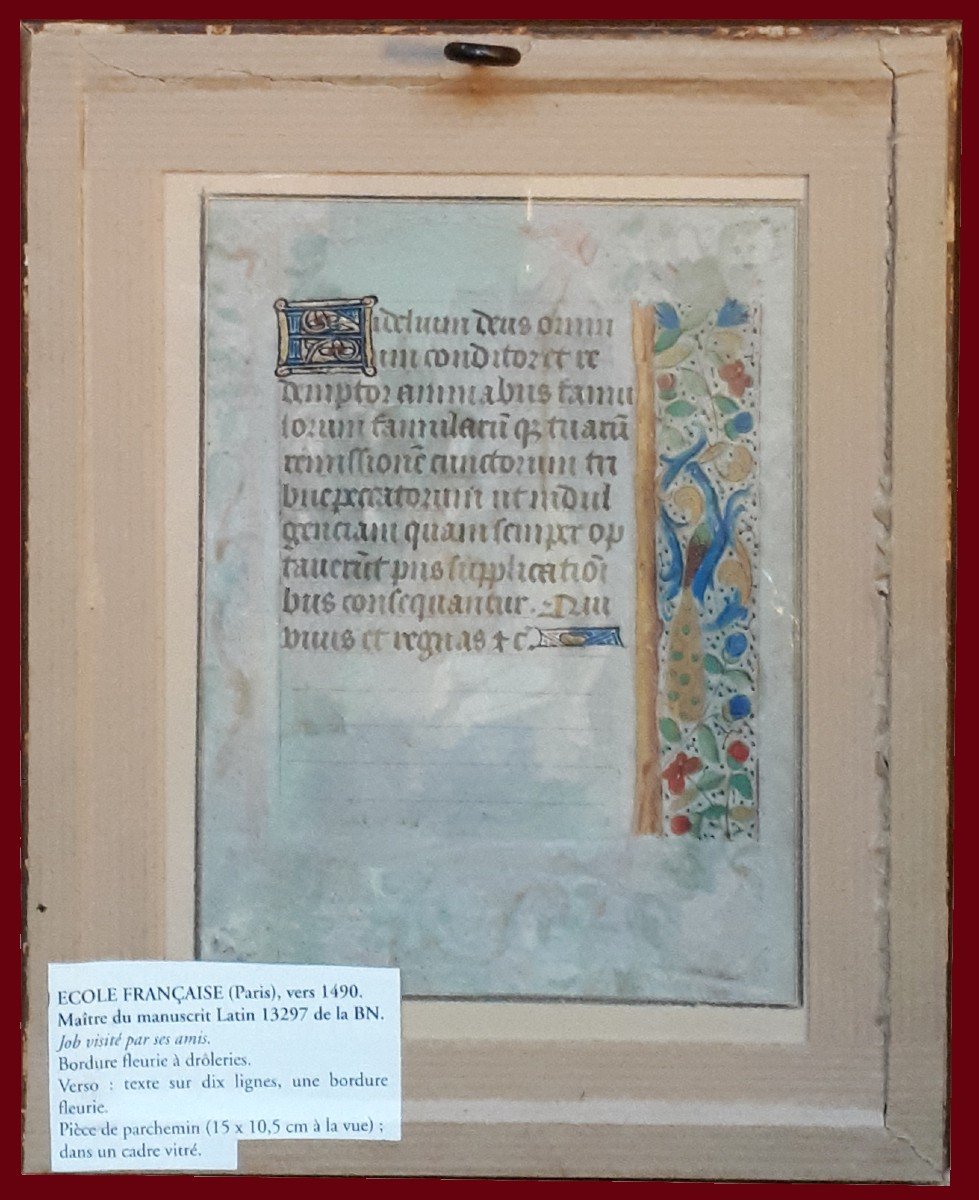 Fidelium deus omni
um conditor et re
demptor animabus famu
lorum famularũ qꝫ tuarũ
remissionẽ cunctorum tri
bue peccatorum ut indul
genciam quam semper op
tauerũt piis supplicatioĩ
bus consequantur. Qui
viuis et regnas ⁊ c̃.
ECOLE FRANÇAISE (Paris), vers 1490.
Maître du manuscrit Latin 13297 de la BN.
Job visité par ses amis.
Bordure fleurie à drôleries.
Verso : texte sur dix lignes, une bordure
fleurie.
Pièce de parchemin (15 x 10,5 cm à la vue) ;
dans un cadre vitré.